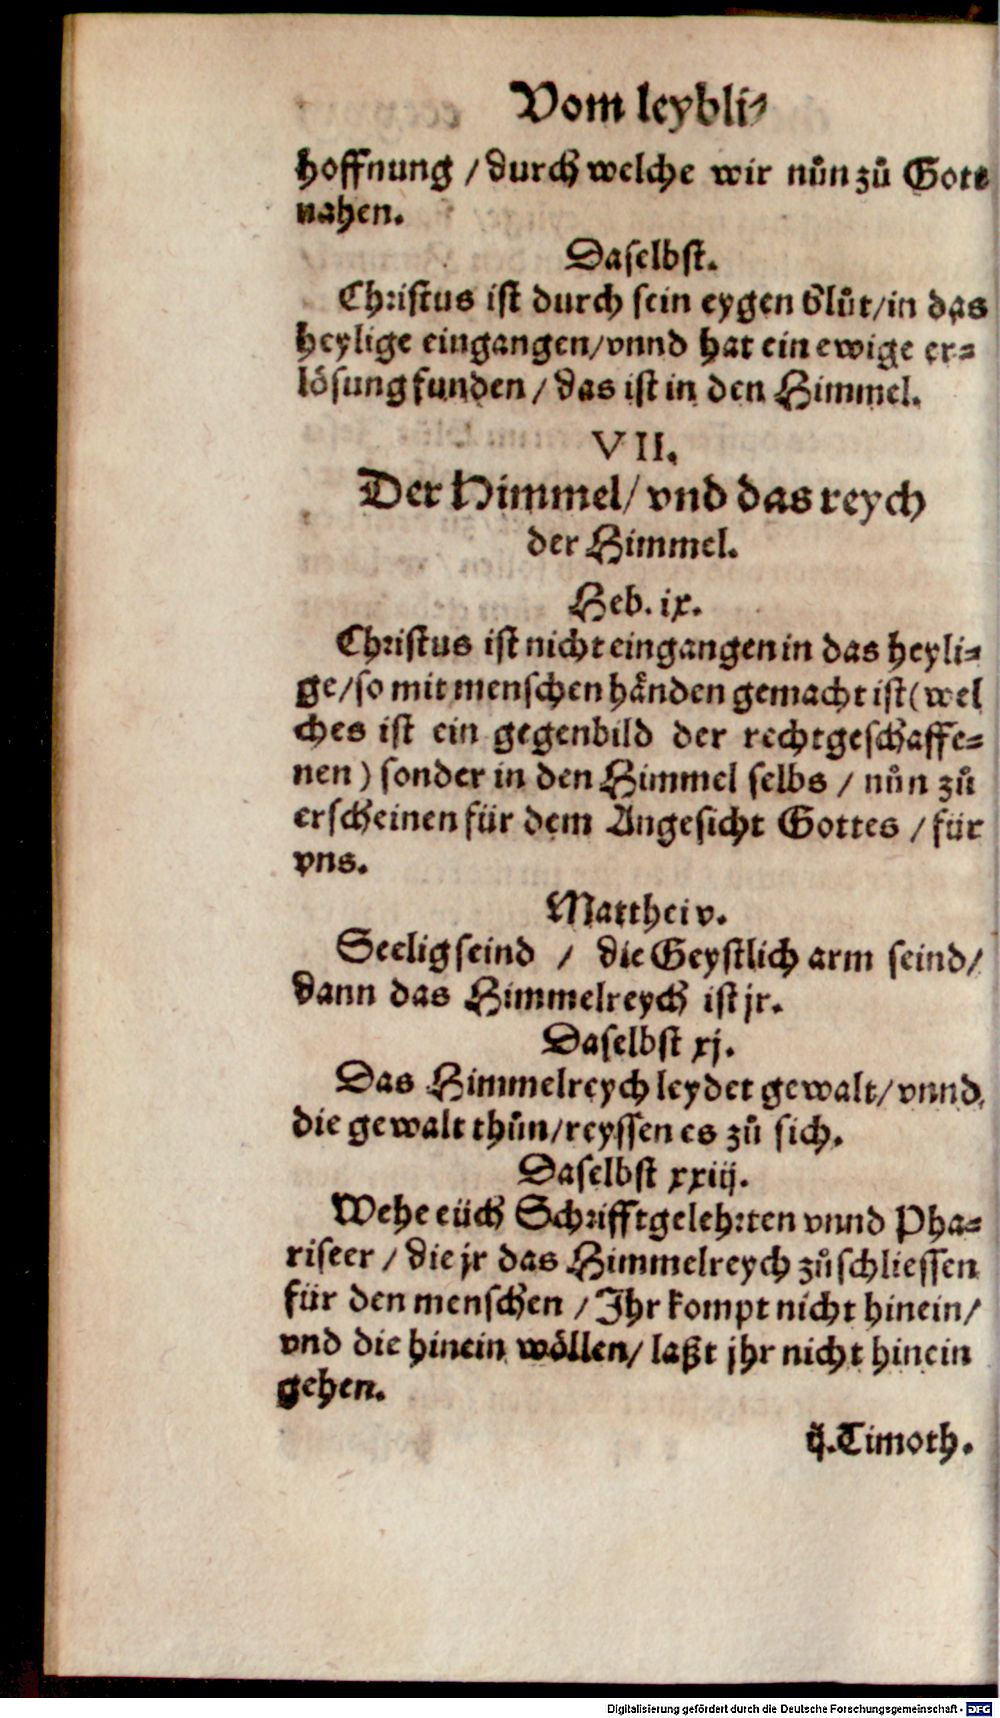 Vom leybli⸗
hoffnung / durch welche wir nůn zů Gott
nahen.
Daselbst.
Christus ist durch sein eygen blůt/in das
heylige eingangen/vnnd hat ein ewige er⸗
lösung funden / das ist in den Himmel.
VII.
Der Himmel/ vnd das reych
der Himmel.
Heb. ix.
Christus ist nicht eingangen in das heyli⸗
ge/so mit menschen händen gemacht ist(wel
ches ist ein gegenbild der rechtgeschaffe⸗
nen) sonder in den Himmel selbs / nůn zů
erscheinen für dem Angesicht Gottes / für
vns.
Matthei v.
Seelig seind / die Geystlich arm seind/
dann das Himmelreych ist jr.
Daselbst xj.
Das Himmelreych leydet gewalt/ vnnd
die gewalt thůn/reyssen es zů sich.
Daselbst xxiij.
Wehe eüch Schrifftgelehrten vnnd Pha⸗
riseer / die jr das Himmelreych zůschliessen
für den menschen / Ihr kompt nicht hinein/
vnd die hinein wöllen/ laßt jhr nicht hinein
gehen.
ij. Timoth.
Digitalisierung gefördert durch die Deutsche Forschungsgemeinschaft - DFG